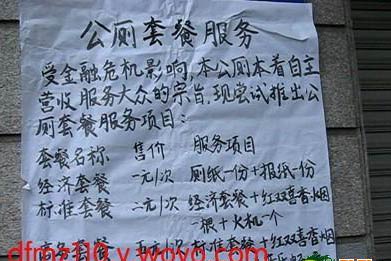 公厕套餐服务
受金融危机影响,本公厕本着自主
营收服务大众的宗旨,现尝试推出公
厕套餐服务项目:
套餐名称 售价 服务项目
经济套餐 一元/次 厕纸一份+报纸一份
标准套餐 二元/次 经济套餐+红双喜香烟
一根+火机一个
商务套餐 标准套餐+红双喜香烟